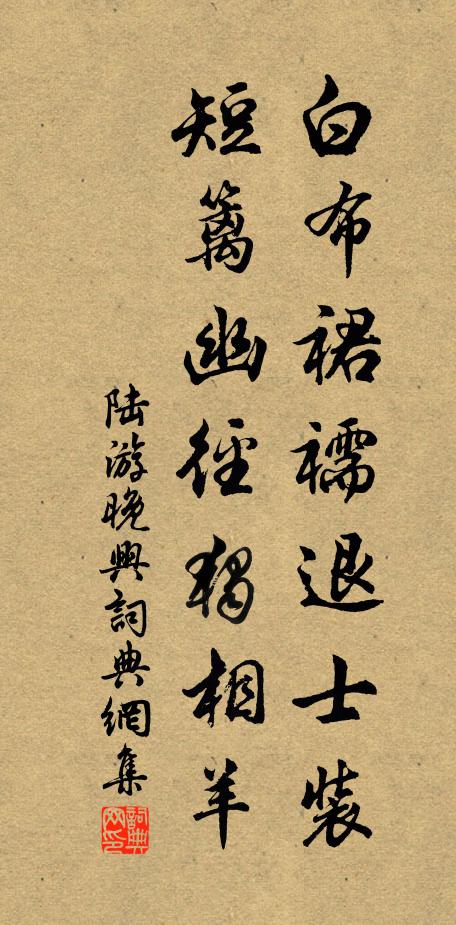 白布裙襦退士裝
短籬幽徑獨相羊
陆游晚興詞典網集
詞典网印